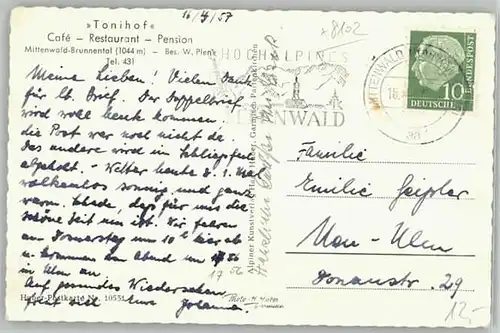 16/4/57
»Tonihof«
Café - Restaurant - Pension
Mittenwald-Brunnental (1044 m) - Bes. W. Plenk
Tel. 431
Meine Lieben! Vielen Dank
für lb. Brief. Der Doppelbrief
wird wohl heute kommen.
die Post war noch nicht da.
Das andere wird im
abgeholt. - Wetter heute d. 1. Mal
wolkenlos sonnig und ganz
warm. Schade, daß für uns die
schöne Zeit um ist. Wir fahren
am Donnerstag um 10 h hier ab
u. kommen am Abend um 17 56
in Ulm an
Auf gesundes Wiedersehen
Eure Johanna
17 56
Huber-Postkarte Nr. 10531
Alpiner Kunstverlag Hans Huber, Garmisch-Partenkirchen
HOCHALPINES
MITTENWALD
MITTENWALD
10
DEUTSCHE
BUNDESPOST
8102
Familie
Emilie Geißler
Neu-Ulm
Donaustr. 29
12.-